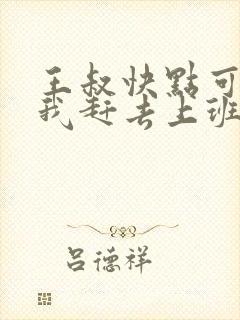 王叔快點可
我赶去上班
吕德祥